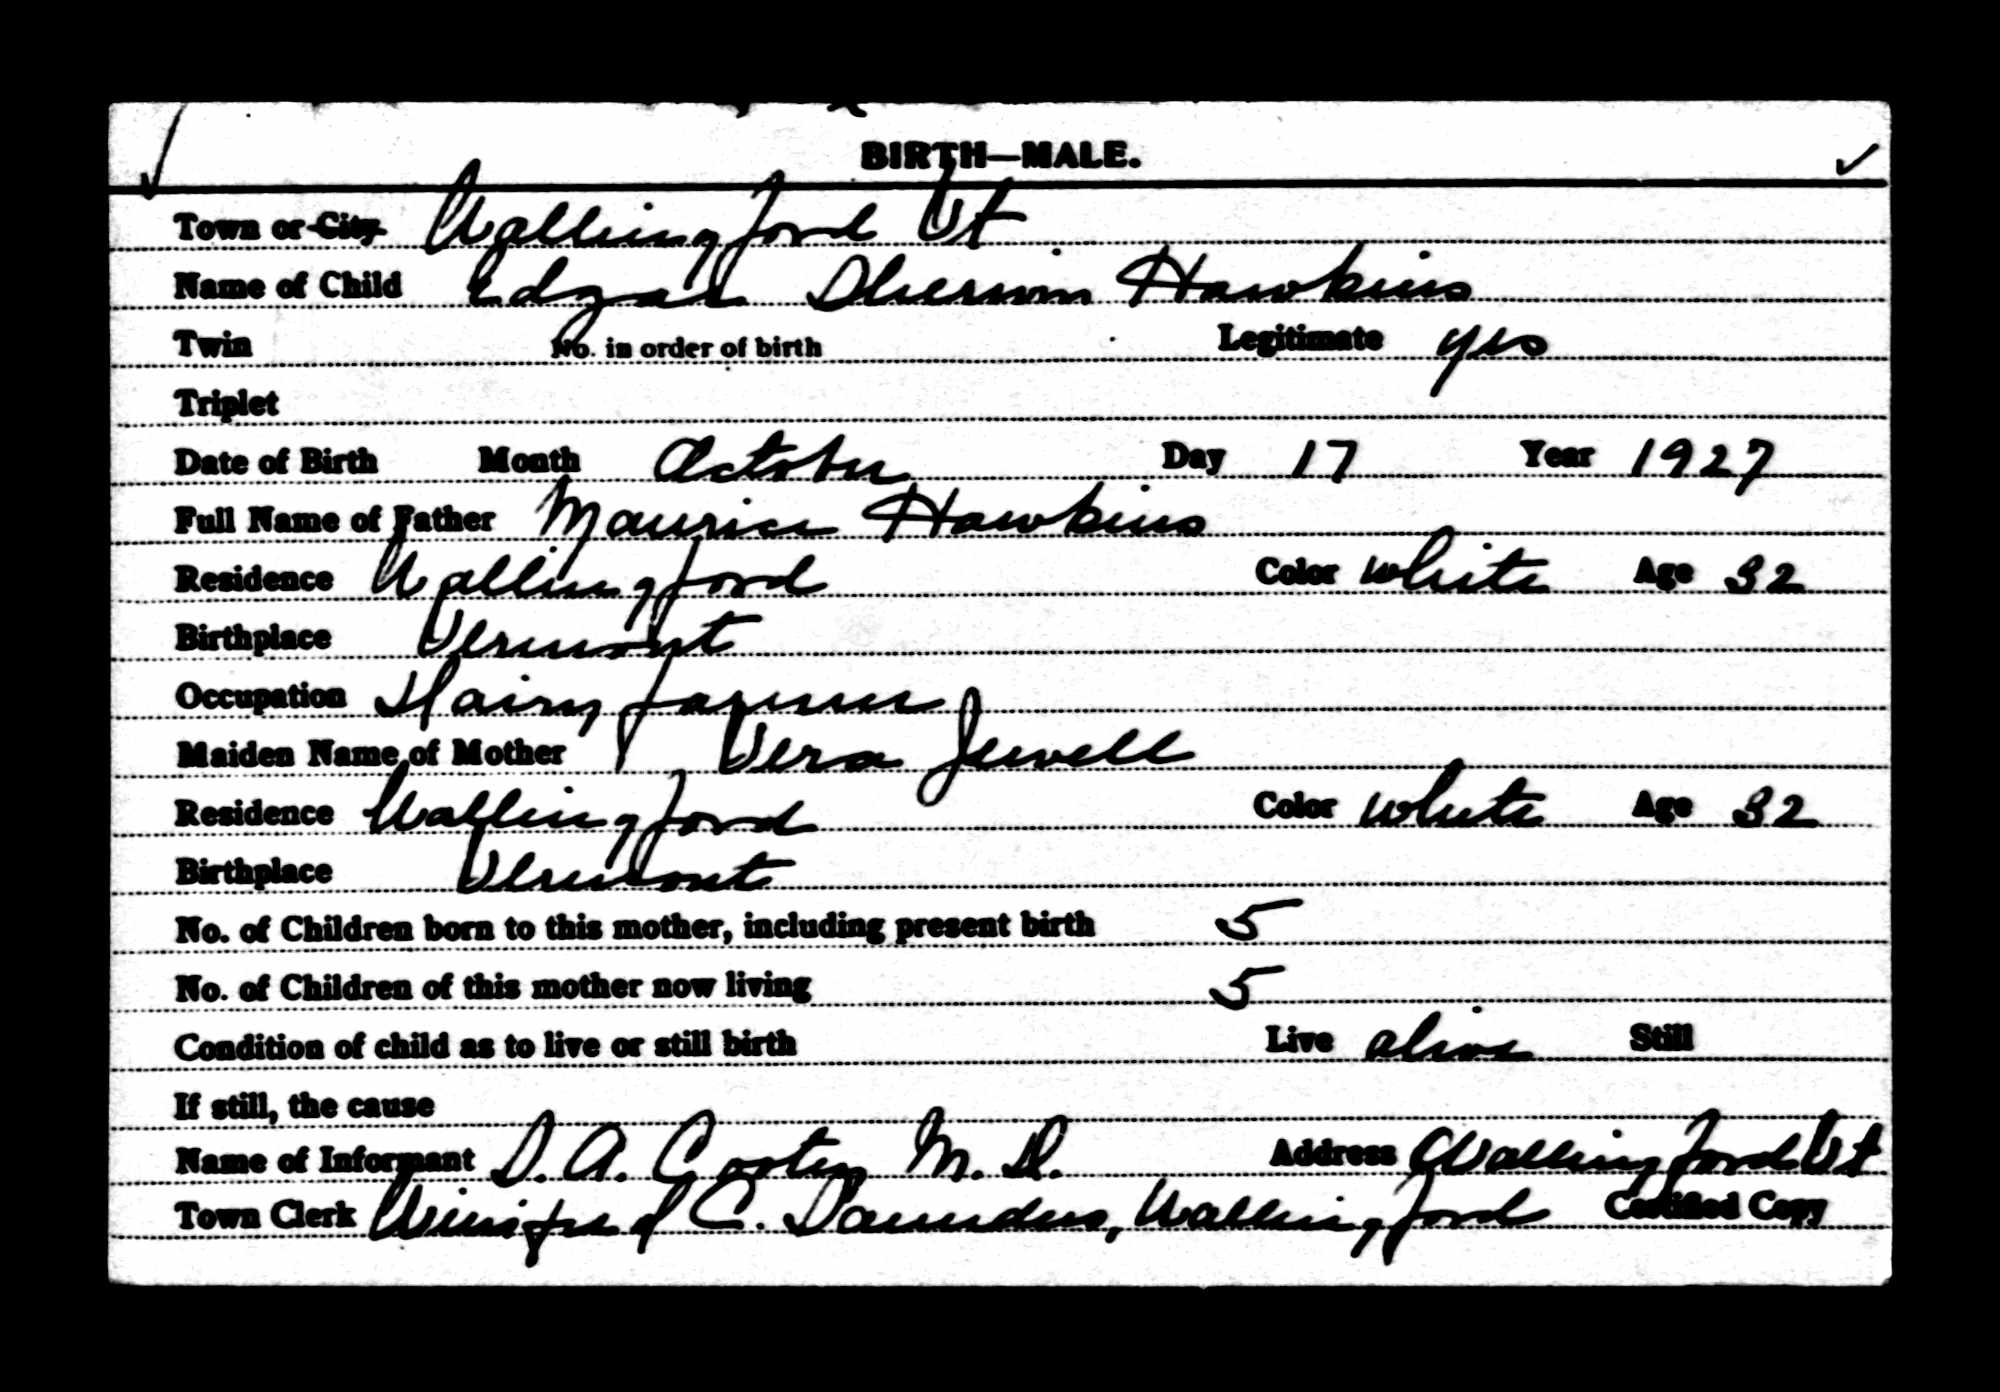 BIRTH—MALE.
Town or City Wallingford Vt
Name of Child Edgar Sherwin Hawkins
Twin No. in order of birth Legitimate yes
Triplet
Date of Birth Month October Day 17 Year 1927
Full Name of Father Maurice Hawkins
Residence Wallingford Color White Age 32
Birthplace Vermont
Occupation Dairy farmer
Maiden Name of Mother Vera Jewell
Residence Wallingford Color White Age 32
Birthplace Vermont
No. of Children born to this mother, including present birth 5
No. of Children of this mother now living 5
Condition of child as to live or still birth Live alive Still
If still, the cause
Name of Informant D. A. M.D. Address Wallingford Vt
Town Clerk Winifred C. Saunders, Wallingford Certified Copy